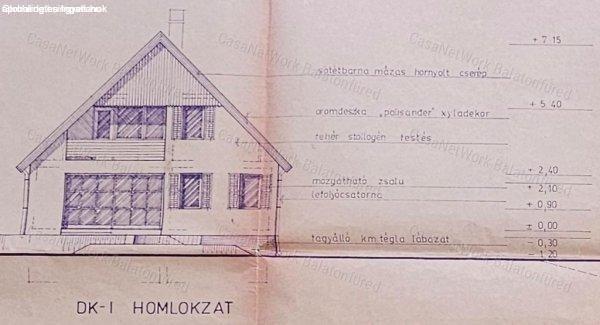 CasaNetWork Balatonfüred
CasaNetWork Balatonfüred
+ 7 15
sötétbarna mázas hornyolt cserép
+ 5 40
oromdeszka „palisander" xyladekor
fehér stollogén festés
+ 2,40
mozgatható zsalu
+ 2,10
lefolyócsatorna
+ 0,90
± 0,00
fagyálló km. tégla lábazat
- 0,30
- 1,20
DK-I HOMLOKZAT